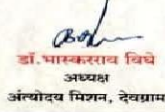 डॉ.भास्करराव विघे
अध्यक्ष
अंत्योदय मिशन, देवग्राम